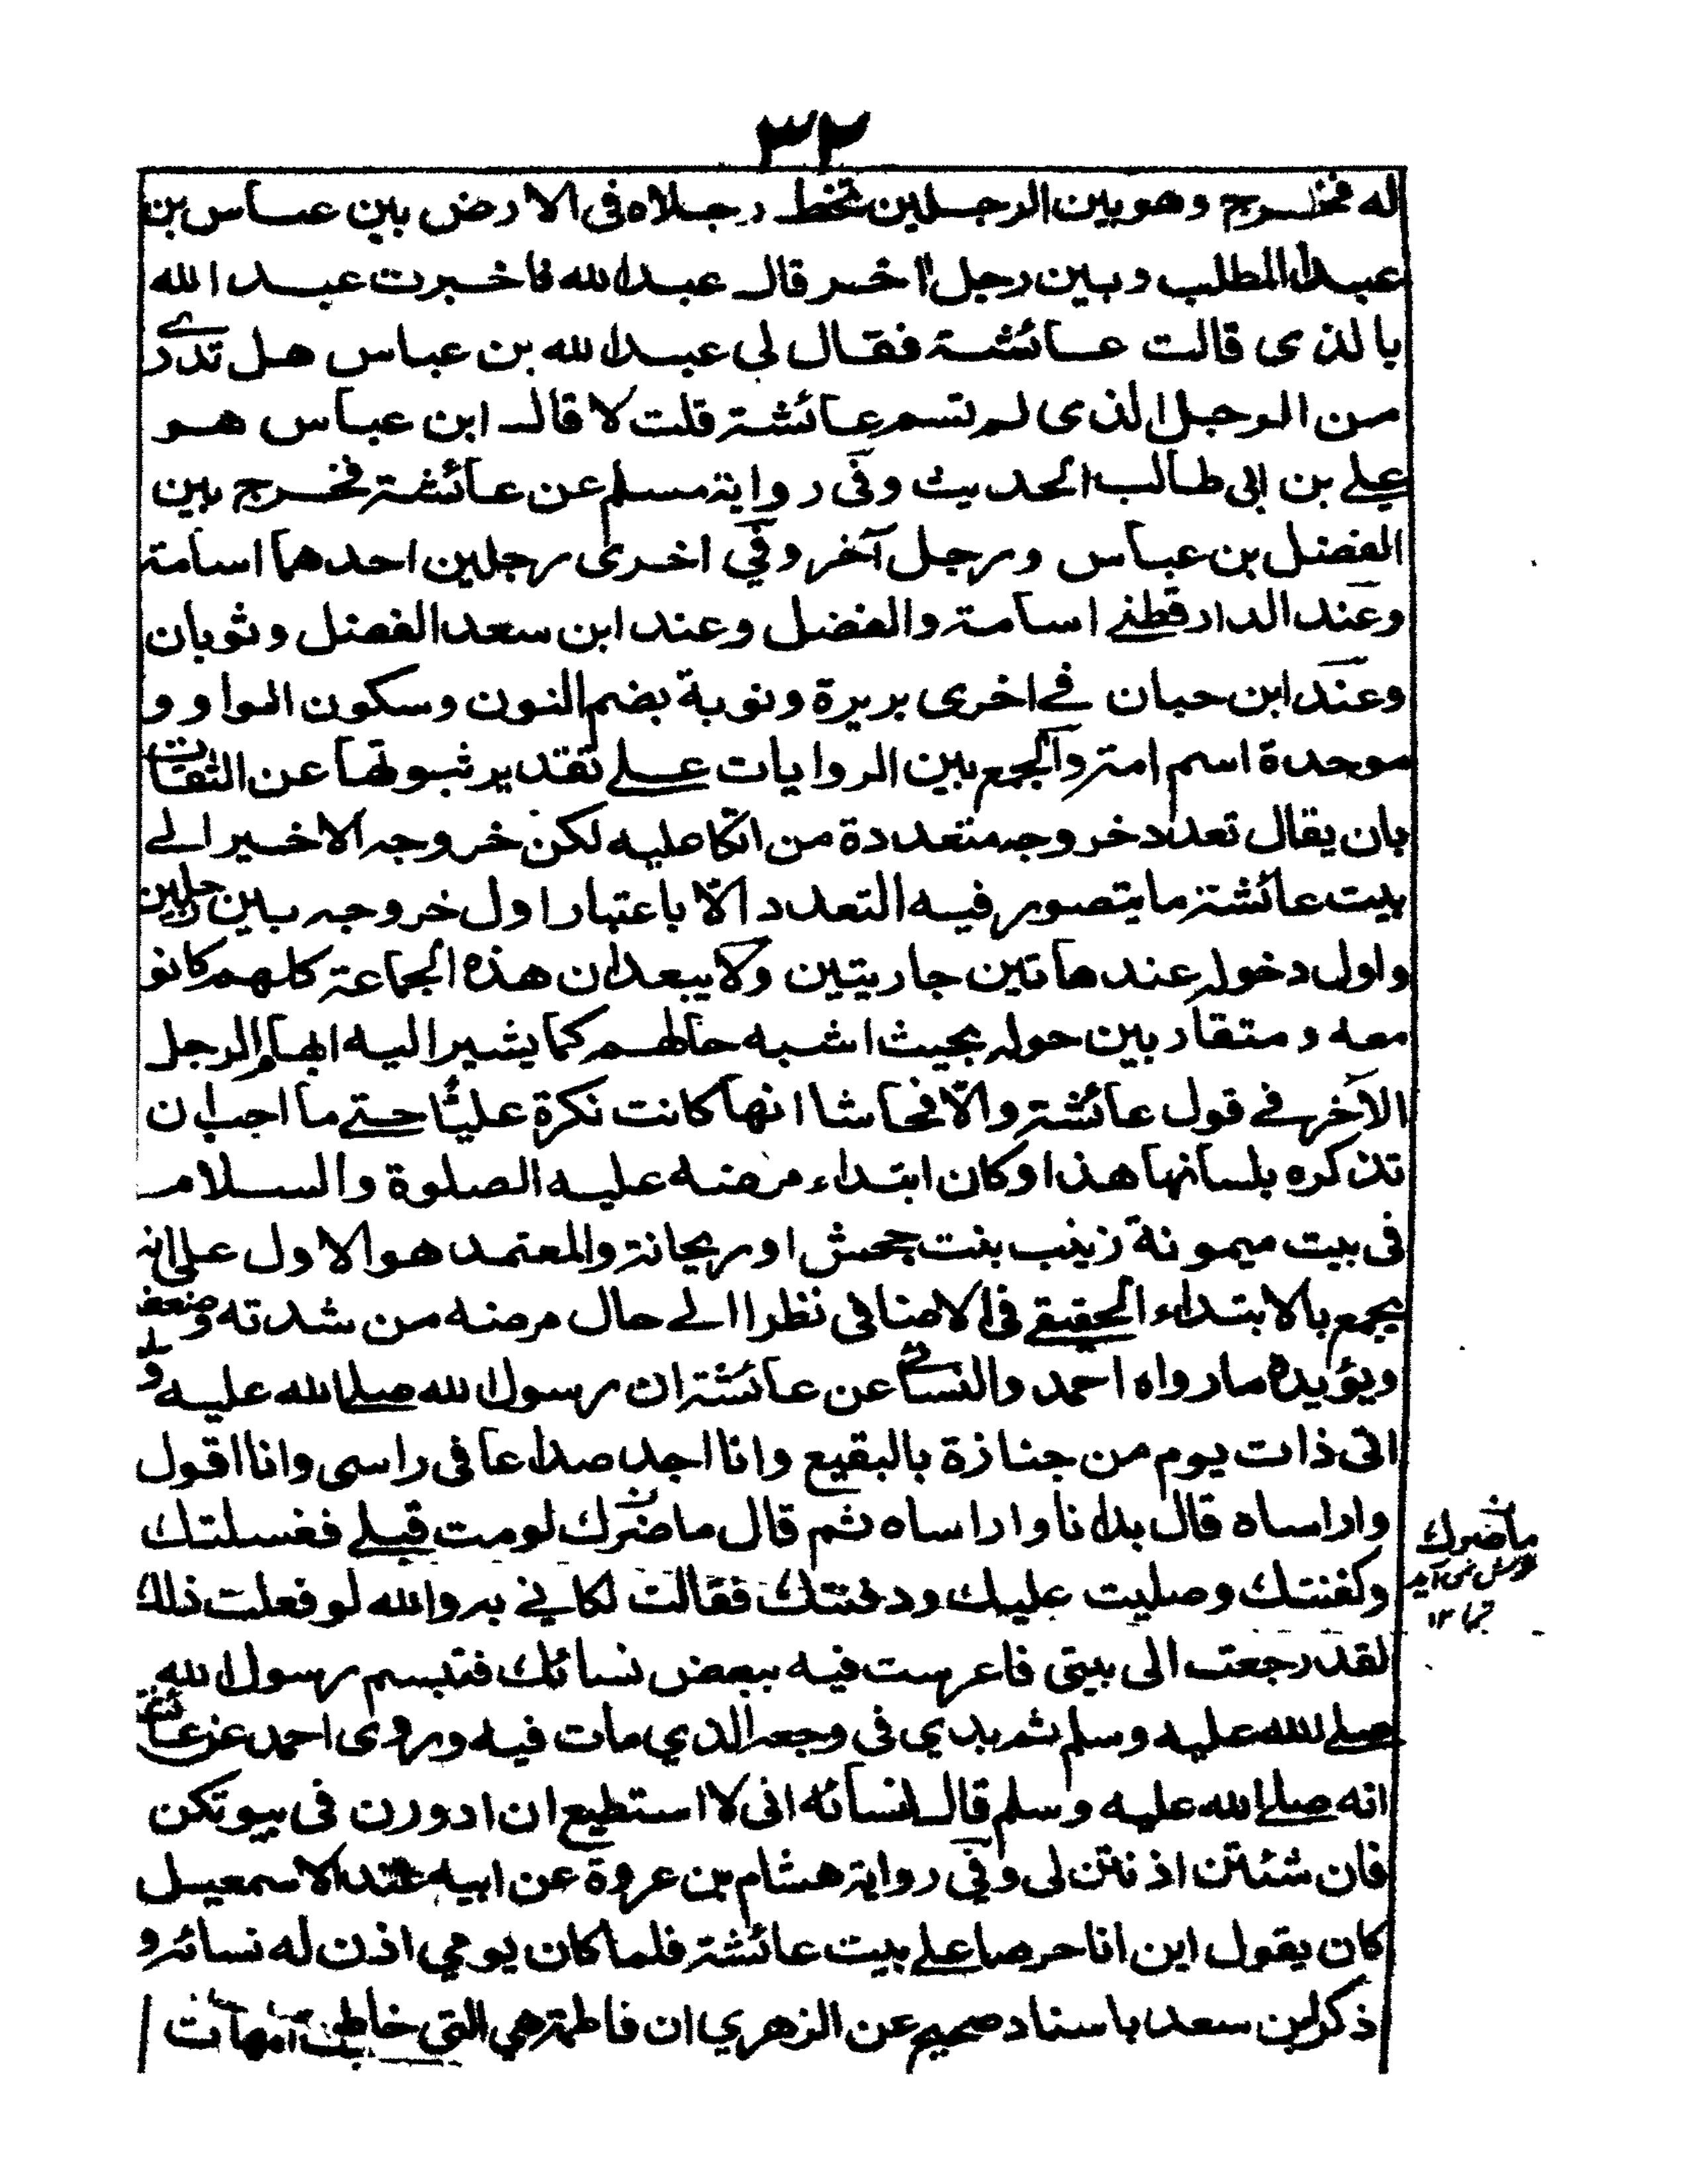 ٣٢
له فخرج وهو بين الرجلين تخط رجلاه فى الارض بين عباس بن
عبد المطلب وبين رجل اخر قال عبد الله فاخبرت عبد الله
بالذى قالت عائشة فقال لي عبد الله بن عباس هل تدرے
من الرجل الذى لم تسم عائشة قلت لا قال ابن عباس هو
علے بن ابى طالب الحديث وفى رواية مسلم عن عائشة فخرج بين
الفضل بن عباس ورجل آخر وفي اخرى رجلين احدهما اسامة
وعند الدارقطنے اسامة والفضل وعند ابن سعد الفضل وثوبان
وعند ابن حبان فے اخرى بريرة ونوبة بضم النون وسكون الواو و
موحدة اسم امة والجمع بين الروايات علے تقدير ثبوتها عن الثقات
بان يقال تعدد خروجه متعددة من اتكا عليه لكن خروجه الاخير الے
بيت عائشة ما يتصور فيه التعدد الا باعتبار اول خروجه بين رجلين
واول دخوله عندها تين جاريتين ولا يبعد ان هذه الجماعة كلهم كانو
معه ومتقاربين حوله بحيث اشبه حالهم كما يشير اليه ابهام الرجل
الآخر فے قول عائشة والا فحاشا انها كانت نكرة عليا حتے ما احب ان
تذكره بلسانها هذا وكان ابتداء مرضه عليه الصلوة والسلام
فى بيت ميمونة زينب بنت جحش او ريحانة والمعتمد هو الاول على انه
يجمع بالابتداء الحقيقے فى الاضافى نظرا الے حال مرضه من شدته وضعفه
ويؤيده ما رواه احمد والنسائے عن عائشة ان رسول الله صلے الله عليه وسلم
اتى ذات يوم من جنازة بالبقيع وانا اجد صداعا فى راسى وانا اقول
واراساه قال بل انا واراساه ثم قال ما ضرك لو مت قبلے فغسلتك
وكفنتك وصليت عليك ودفنتك فقالت لكاني به والله لو فعلت ذلك
لقد رجعت الى بيتى فاعرست فيه ببعض نسائك فتبسم رسول الله
صلے الله عليه وسلم ثم بدي فى وجعه الذي مات فيه وروى احمد عن عائشة
انه صلے الله عليه وسلم قال لنسائه انى لا استطيع ان ادورن فى بيوتكن
فان شئتن اذنتن لى وفي رواية هشام بن عروة عن ابيه عند الاسمعيل
كان يقول اين انا حرصا علے بيت عائشة فلما كان يومي اذن له نسائه و
ذكر ابن سعد باسناد صحيح عن الزهري ان فاطمة هي التى خاطبت امهات
ما ضرك